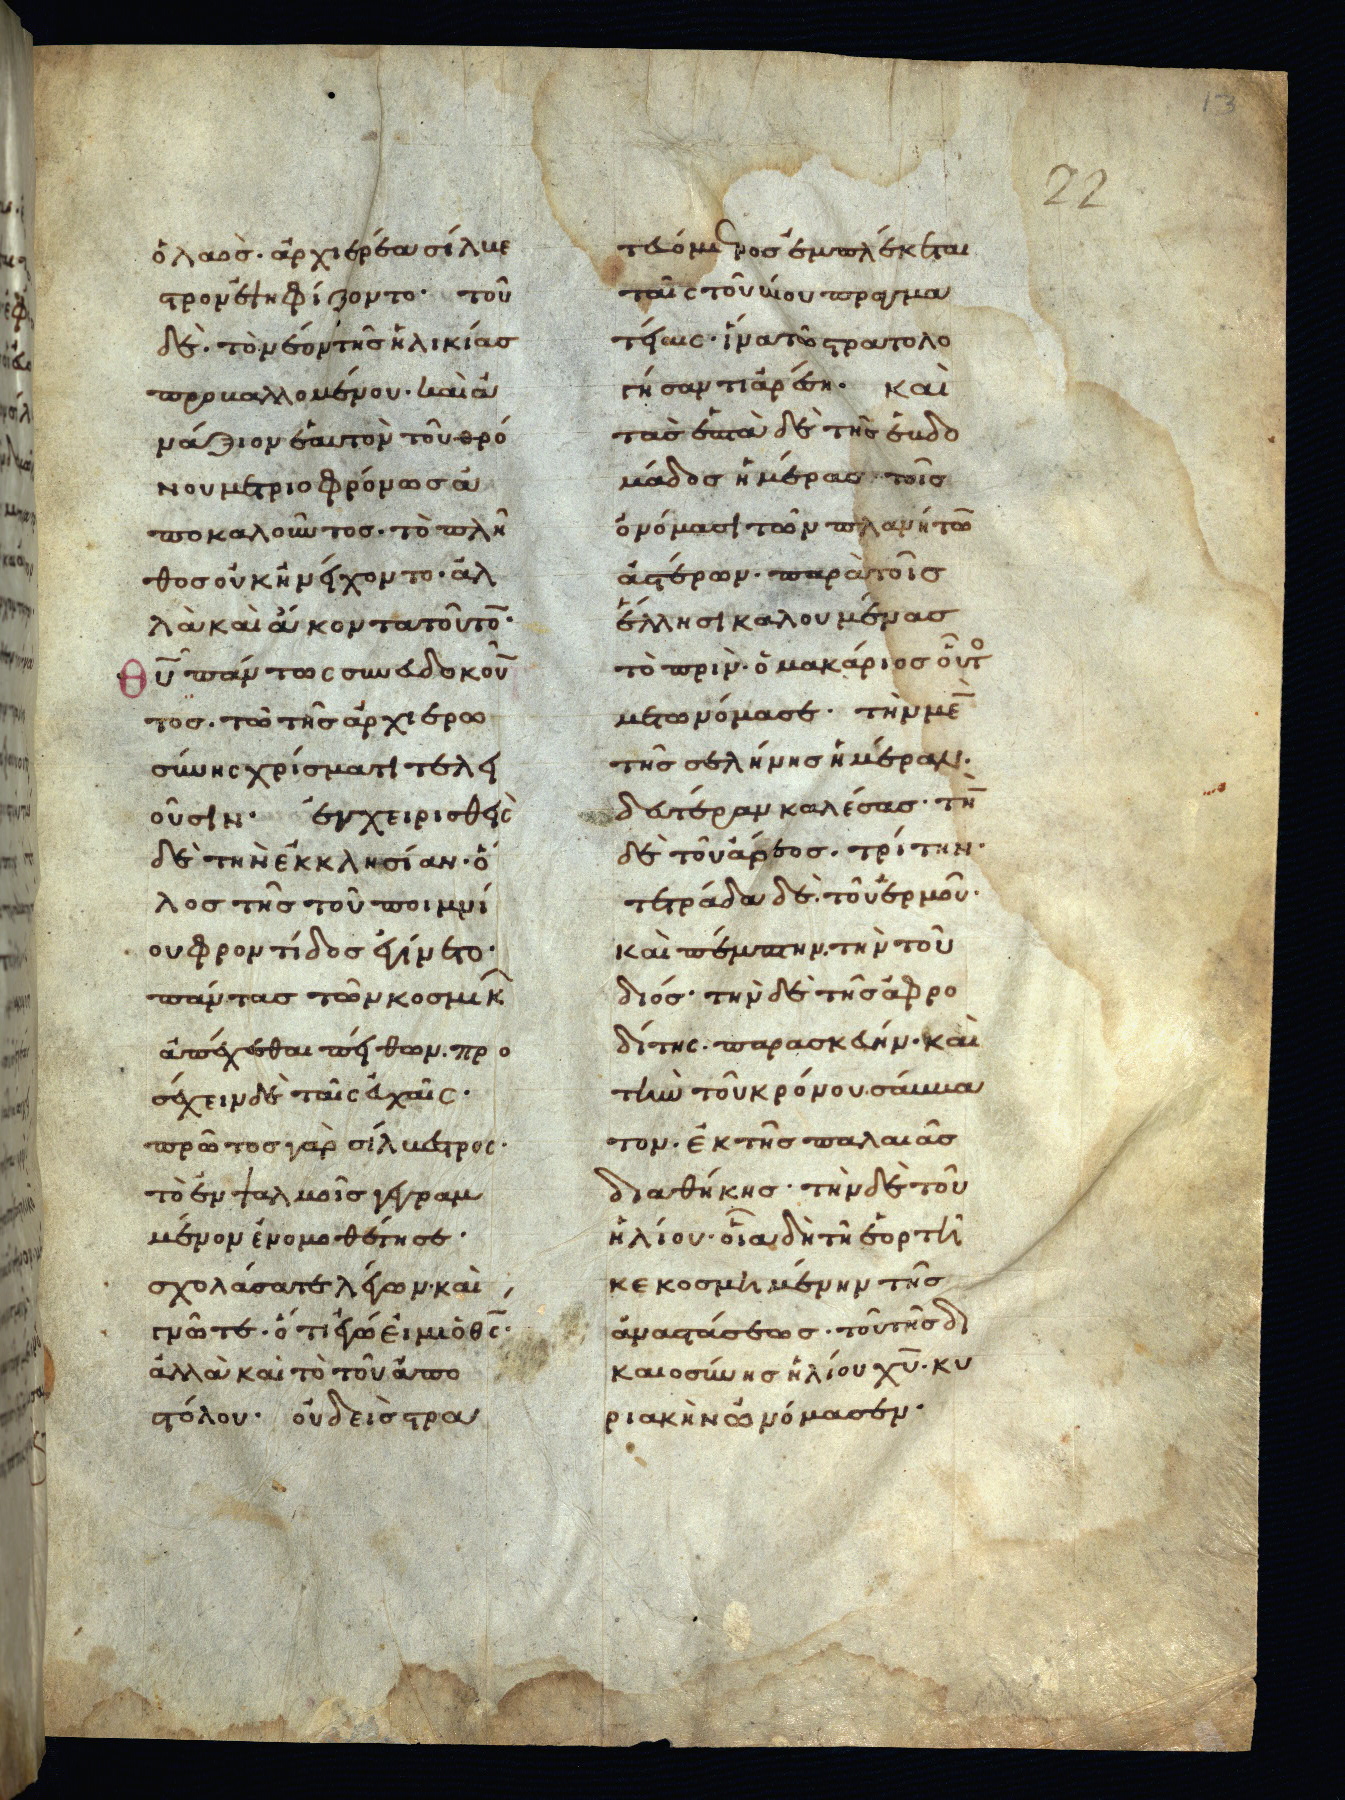 13
22
ὁ λαὸς· ἀρχιερέα σίλβε
στρον ἐψηφίζοντο· τοῦ
δὲ· τὸ νέον τῆς ἡλικίας
προβαλλομένου· καὶ ἀ
νάξιον ἑαυτὸν τοῦ θρό
νου μετριοφρόνως ἀ
ποκαλοῦντος· τὸ πλῆ
θος οὐκ ἠνείχοντο· ἀλ
λὰ καὶ ἄκοντα τοῦτο̅·
θυ̅ πάντως συνευδοκοῦ̅
τος· τῶ τῆς ἀρχιερω
σύνης χρίσματι τελει
οῦσιν· ἐγχειρισθεὶς
δὲ τὴν ἐκκλησίαν· ὅ
λος τῆς τοῦ ποιμνί
ου φροντίδος ἐγίνετο·
πάντας τῶν κοσμικ̅
ἀπέχεσθαι πειθων· προ
σέχειν δὲ ταῖς εὐχαῖς·
πρῶτος γὰρ σίλβεστρος·
τὸ ἐν ψαλμοῖς γεγραμ
μένον ἐνομοθέτησε·
σχολάσατε λέγων· καὶ
γνῶτε· ὅτι ἐγώ εἰμι ὁ θς̅·
ἀλλὰ καὶ τὸ τοῦ ἀπο
στόλου· οὐδεὶς στρα
τευόμενος ἐμπλέκεται
ταῖς τοῦ βίου πραγμα
τείαις· ἵνα τῶ στρατολο
γήσαντι ἀρέση· καὶ
τὰς ἑπτὰ δὲ τῆς ἑβδο
μάδος ἡμέρας τοῖς
ὀνόμασι τῶν πλανήτω̅
ἀστέρων· παρὰ τοῖς
ἕλλησι καλουμένας
τὸ πρὶν· ὁ μακάριος οὗτο
μετωνόμασε· τὴν μὲ̅
τῆς σελήνης ἡμέραν·
δευτέραν καλέσας· τὴ̅
δὲ τοῦ ἄρεος· τρίτην·
τετράδα δὲ· τοῦ ἑρμοῦ·
καὶ πέμπτην· τὴν τοῦ
διός· τὴν δὲ τῆς ἀφρο
δίτης· παρασκευήν· καὶ
τὴν τοῦ κρόνου σάββα
τον· ἐκ τῆς παλαιᾶς
διαθήκης· τὴν δὲ τοῦ
ἡλίου· οἷα δὴ τῆ ἑορτῆ
κεκοσμημένην τῆς
ἀναστάσεως· τοῦ τῆς δι
καιοσύνης ἡλίου χυ̅· κυ
ριακὴν ὠνόμασεν·